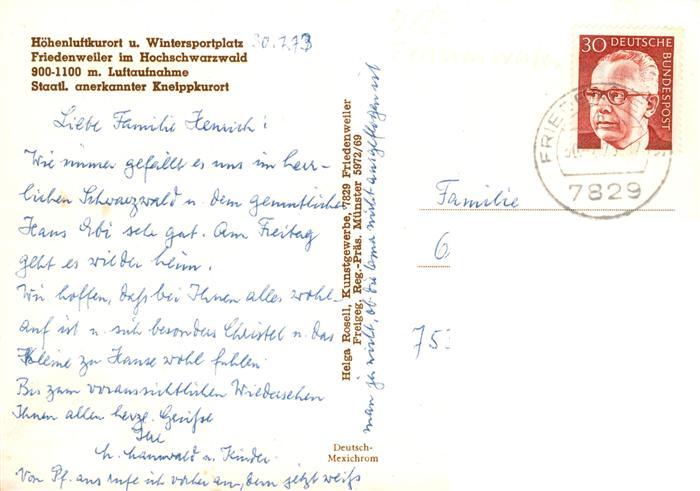 Höhenluftkurort u. Wintersportplatz
Friedenweiler im Hochschwarzwald
900-1100 m. Luftaufnahme
Staatl. anerkannter Kneippkurort
30.7.73
Liebe Familie Henrich!
Wie immer gefällt es uns im herr-
lichen Schwarzwald u. dem gemütlichen
Haus Ebi sehr gut. Am Freitag
geht es wieder heim.
Wir hoffen, daß bei Ihnen alles wohl-
auf ist u. sich besonders Christel u. das
Kleine zu Hause wohl fühlen.
Bis zum voraussichtlichen Wiedersehen
Ihnen allen herzl. Grüße
Ihre
u. Kinder.
Von Pf. aus rufe ich vorher an, denn jetzt weiß
man ja nicht, ob die Oma nicht ausgeflogen ist
Helga Rosell, Kunstgewerbe, 7829 Friedenweiler
Freigeg. Reg.-Präs. Münster 5972/69
Deutsch-
Mexichrom
30 DEUTSCHE
BUNDESPOST
7829
Familie
6
753